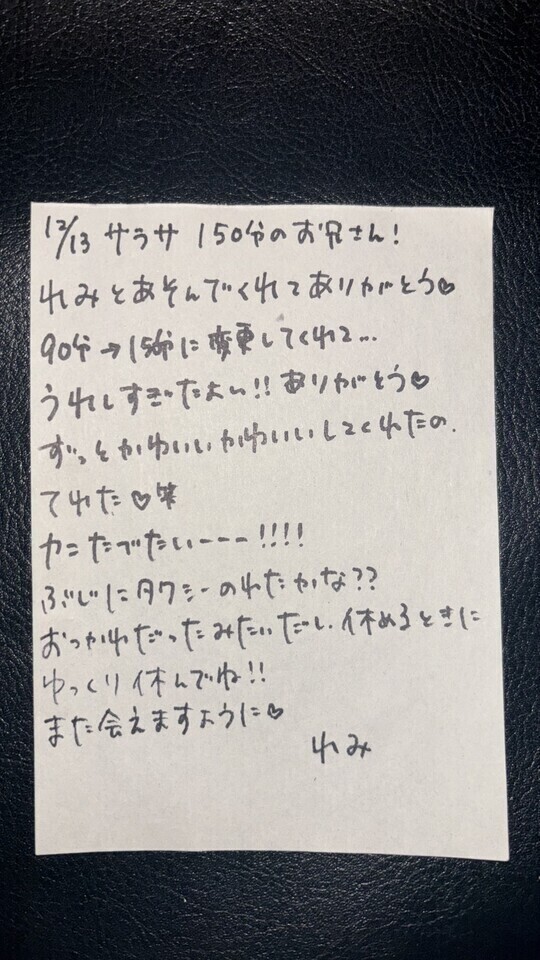 12/13 サラサ 150分のお兄さん!
れみとあそんでくれてありがとう♡
90分→150分に変更してくれて...
うれしすぎたよい!!ありがとう♡
ずっとかわいいかわいいしてくれたの、
てれた♡笑
カニたべたいーーー!!!!
ぶじにタクシーのれたかな??
おつかれだったみたいだし、休めるときに
ゆっくり休んでね!!
また会えますように♡
れみ